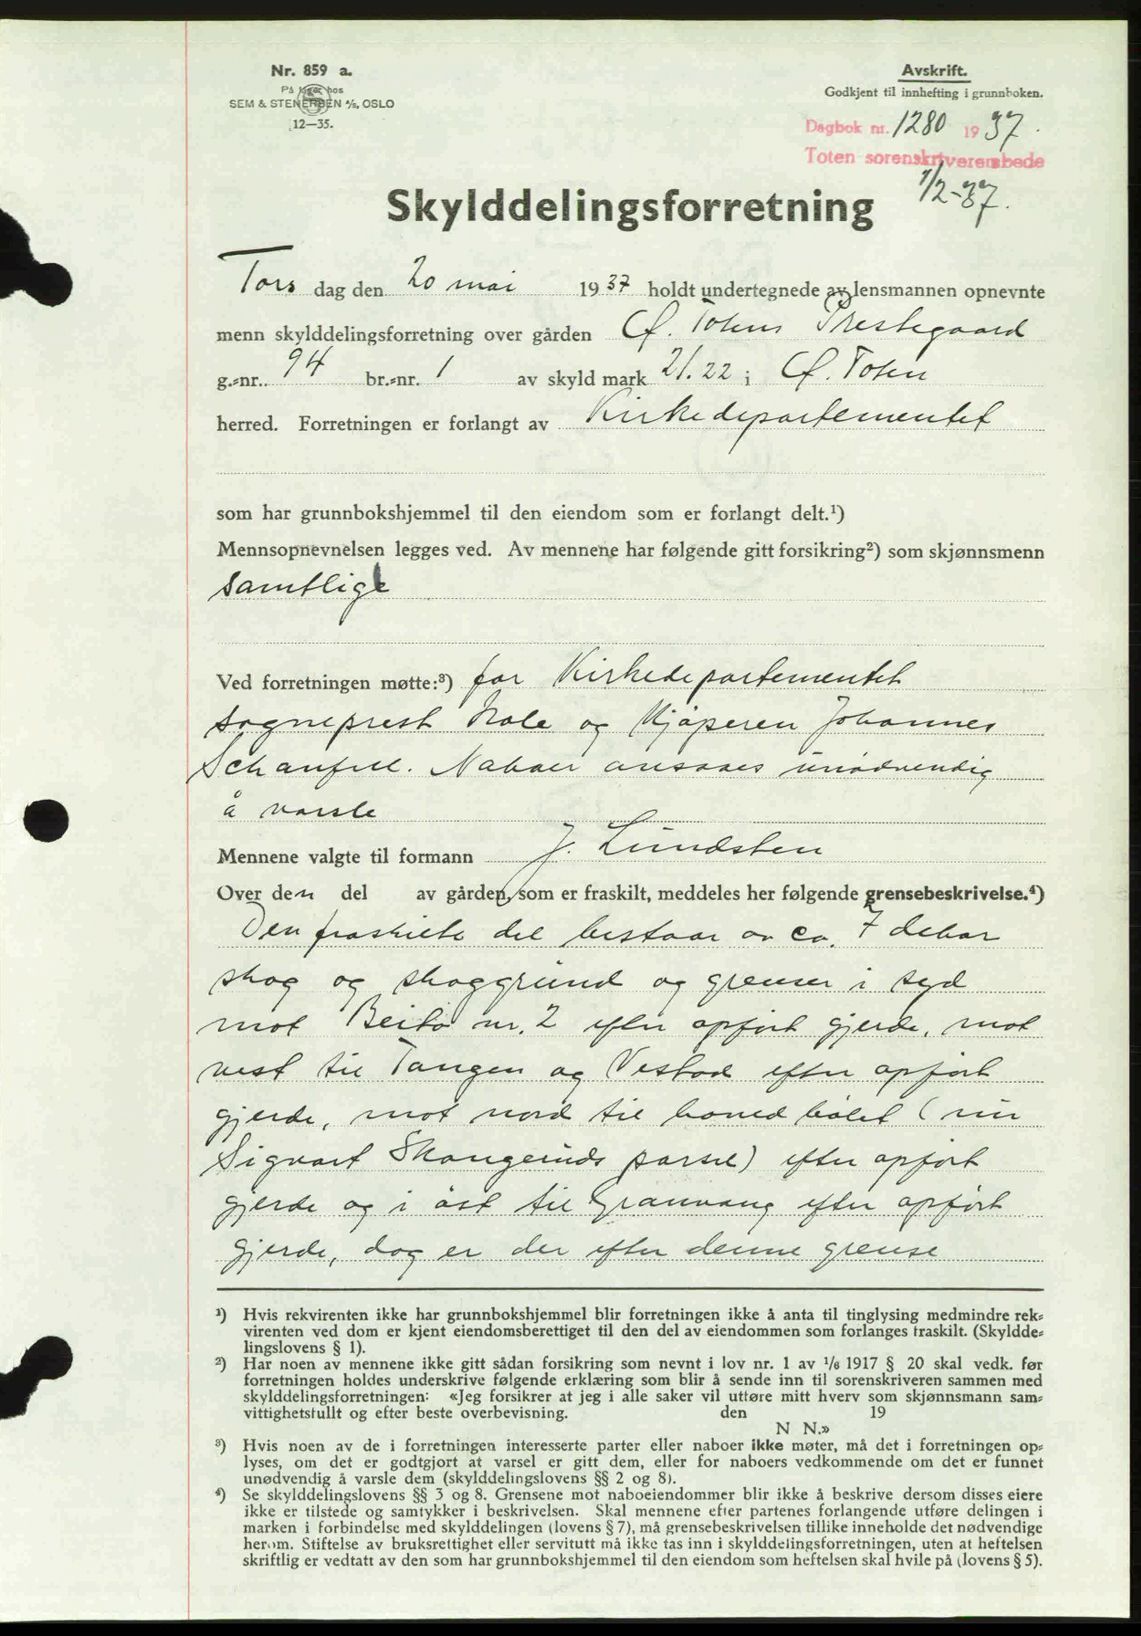 Nr. 859 a.
På lager hos
SEM & STENERSEN A/S, OSLO
12—35.
Avskrift.
Godkjent til innhefting i grunnboken.
Dagbok nr. 1280 1937.
Toten sorenskriverembede
1/2-37.
Skylddelingsforretning
Tors dag den 20 mai 1937 holdt undertegnede av lensmannen opnevnte
menn skylddelingsforretning over gården Ø. Totens Prestegaard
g.-nr. 94 br.-nr. 1 av skyld mark 21.22 i Ø. Toten
herred. Forretningen er forlangt av Kirkedepartementet
som har grunnbokshjemmel til den eiendom som er forlangt delt.¹)
Mennsopnevnelsen legges ved. Av mennene har følgende gitt forsikring²) som skjønnsmenn
samtlige
Ved forretningen møtte:³) for Kirkedepartementet
sogneprest Hole og Kjøperen Johannes
. Naboer ansaaes unødvendig
å varsle
Mennene valgte til formann J. Lundsten
Over den del av gården, som er fraskilt, meddeles her følgende grensebeskrivelse.⁴)
Den fraskilte del bestaar av ca. 7 dekar
skog og skoggrund og grenser i syd
mot Beito nr. 2 efter opført gjerde, mot
vest til Tangen og efter opført
gjerde, mot nord til hovedbølet (nu
Sigvart Skougeruds parsel) efter opført
gjerde og i øst til Granvang efter opført
gjerde, dog er der efter denne grense
¹) Hvis rekvirenten ikke har grunnbokshjemmel blir forretningen ikke å anta til tinglysing medmindre rek-
virenten ved dom er kjent eiendomsberettiget til den del av eiendommen som forlanges fraskilt. (Skyldde-
lingslovens § 1).
²) Har noen av mennene ikke gitt sådan forsikring som nevnt i lov nr. 1 av 1/6 1917 § 20 skal vedk. før
forretningen holdes underskrive følgende erklæring som blir å sende inn til sorenskriveren sammen med
skylddelingsforretningen: «Jeg forsikrer at jeg i alle saker vil utføre mitt hverv som skjønnsmann sam-
vittighetsfullt og efter beste overbevisning. den 19
N N.»
³) Hvis noen av de i forretningen interesserte parter eller naboer ikke møter, må det i forretningen op-
lyses, om det er godtgjort at varsel er gitt dem, eller for naboers vedkommende om det er funnet
unødvendig å varsle dem (skylddelingslovens §§ 2 og 8).
⁴) Se skylddelingslovens §§ 3 og 8. Grensene mot naboeiendommer blir ikke å beskrive dersom disses eiere
ikke er tilstede og samtykker i beskrivelsen. Skal mennene efter partenes forlangende utføre delingen i
marken i forbindelse med skylddelingen (lovens § 7), må grensebeskrivelsen tillike inneholde det nødvendige
herom. Stiftelse av bruksrettighet eller servitutt må ikke tas inn i skylddelingsforretningen, uten at heftelsen
skriftlig er vedtatt av den som har grunnbokshjemmel til den eiendom som heftelsen skal hvile på (lovens § 5).